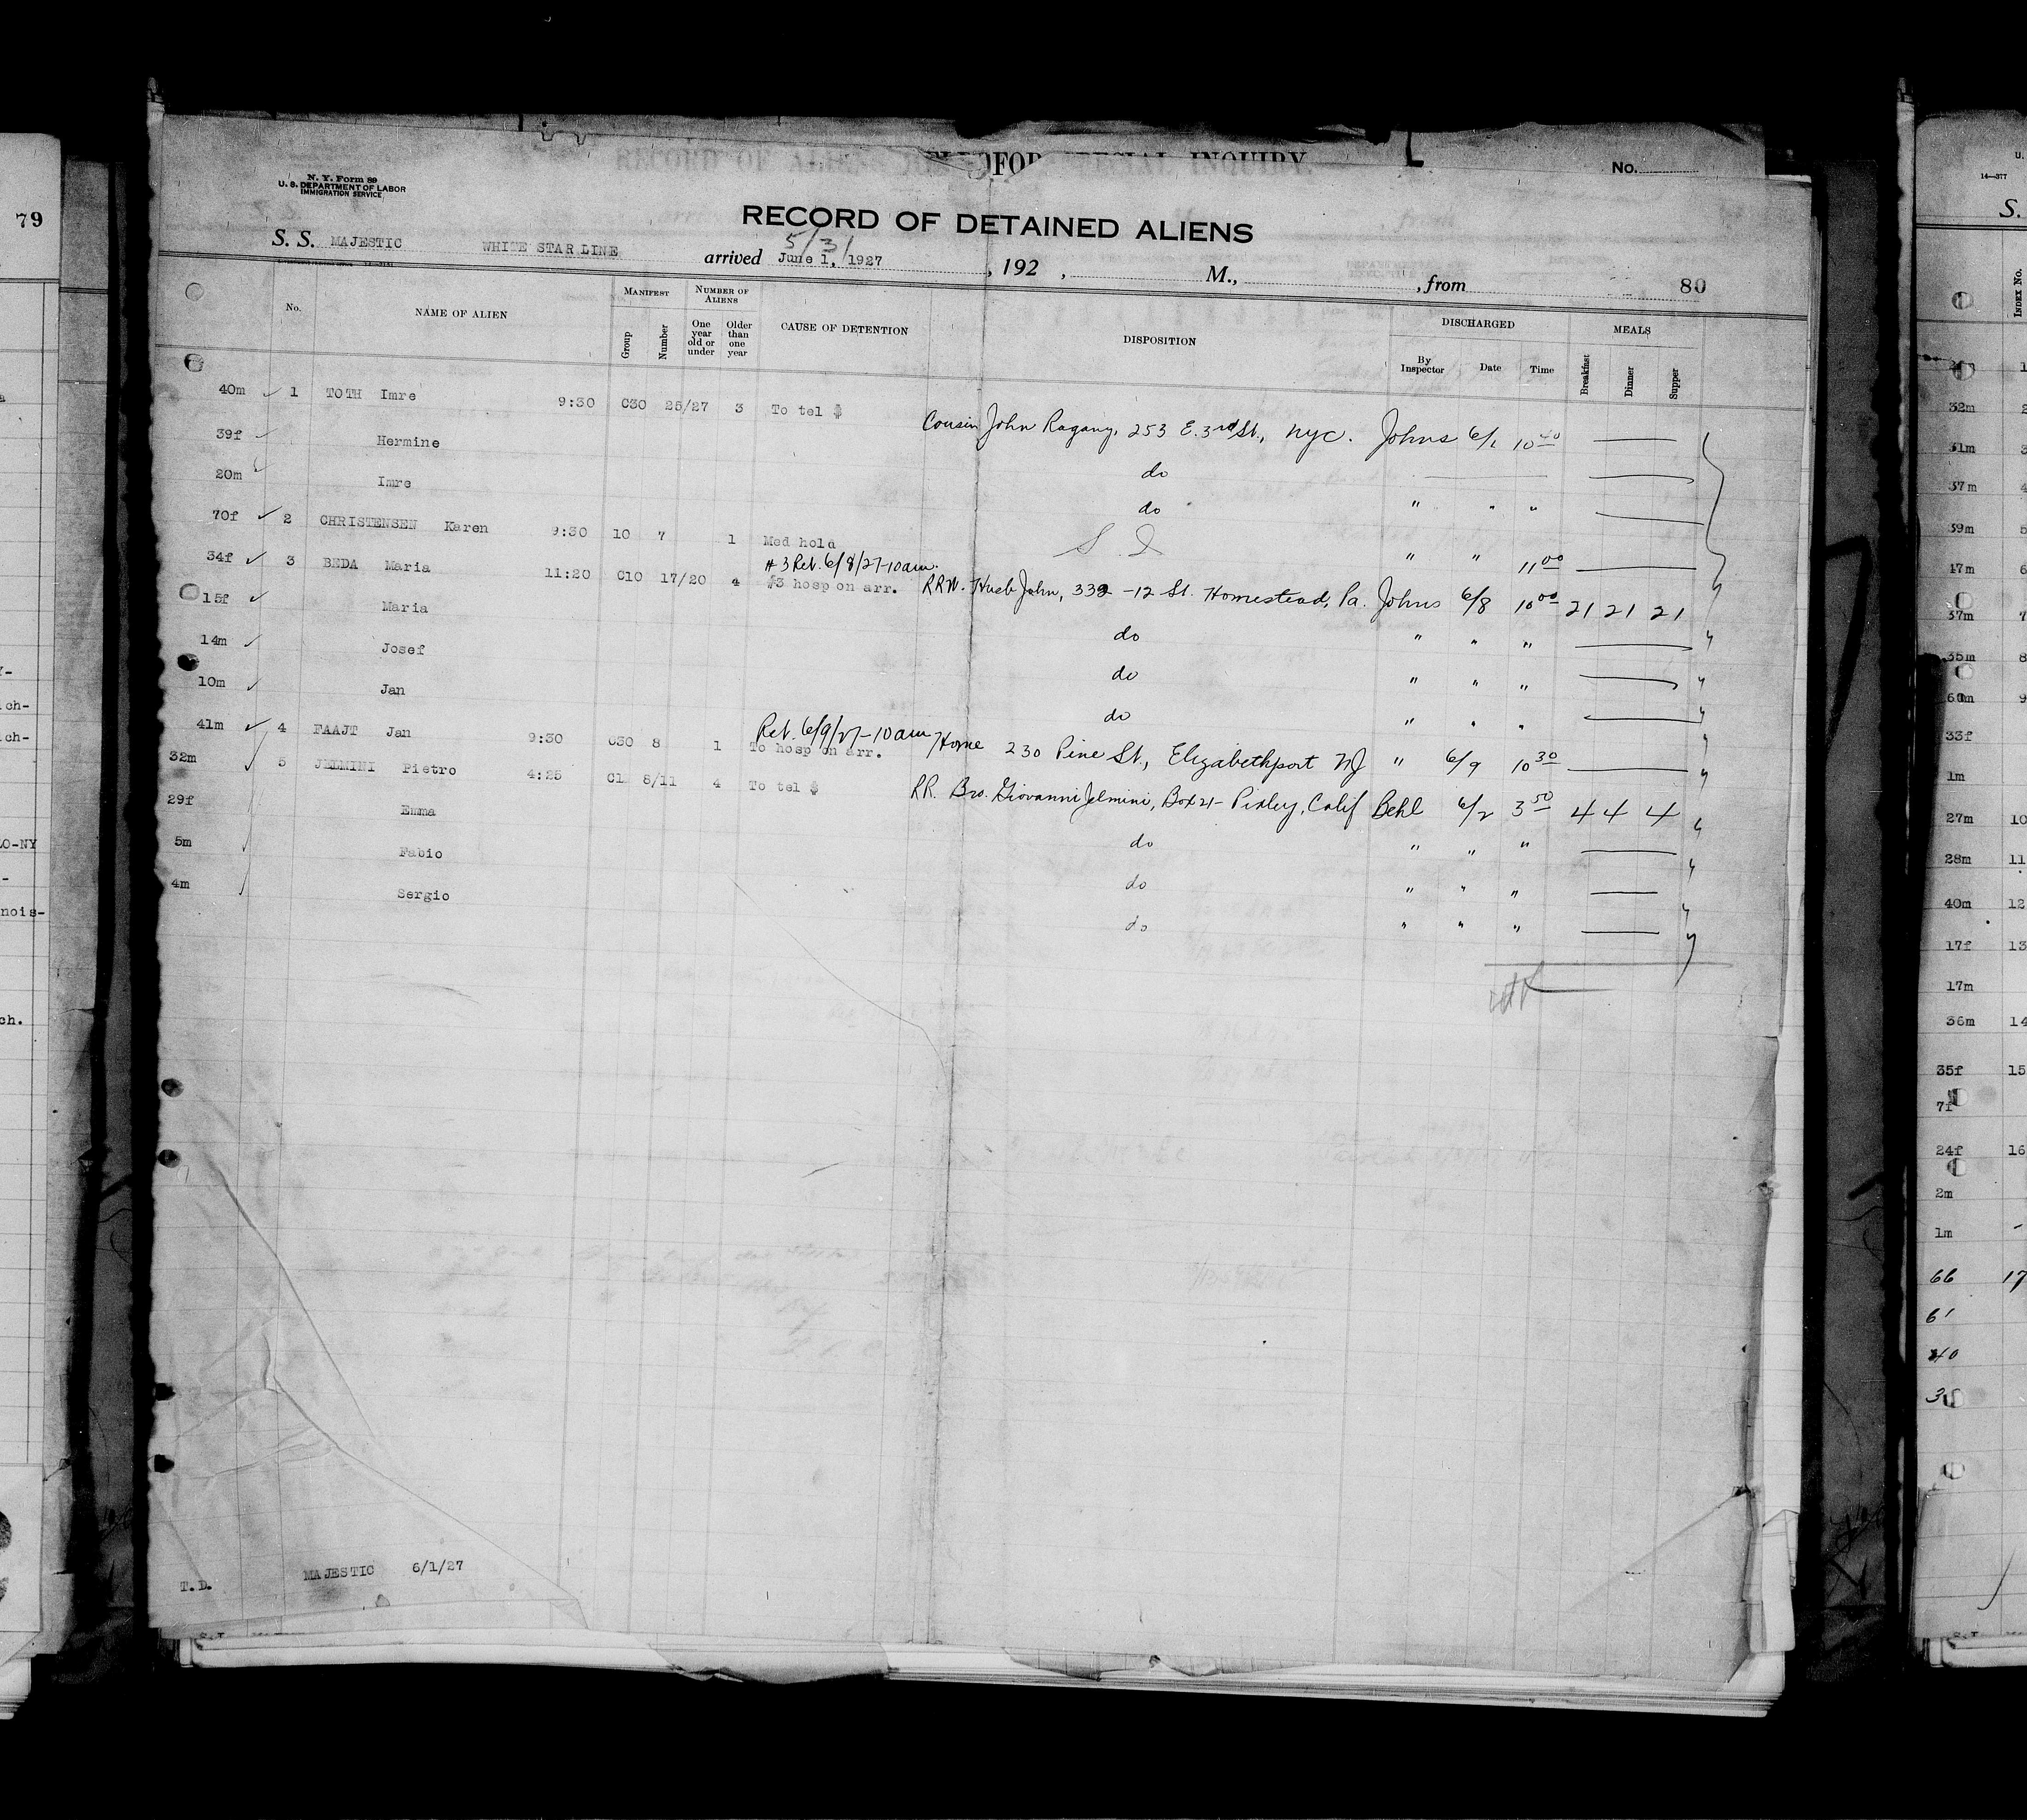 79
N. Y. Form 89
U. S. DEPARTMENT OF LABOR
IMMIGRATION SERVICE
No.
RECORD OF DETAINED ALIENS
S. S. MAJESTIC WHITE STAR LINE arrived 5/31 June 1, 1927 , 192 , M., , from 80
No. NAME OF ALIEN MANIFEST Group Number NUMBER OF ALIENS One year old or under Older than one year CAUSE OF DETENTION DISPOSITION DISCHARGED By Inspector Date Time MEALS Breakfast Dinner Supper
40m 1 TOTH Imre 9:30 C30 25/27 3 To tel $ Cousin John Ragany, 253 E. 3rd St., NYC. Johns 6/1 10 40
39f Hermine do
20m Imre do " " "
70f 2 CHRISTENSEN Karen 9:30 10 7 1 Med hold S. I " " 11 00
#3 Ret. 6/8/27-10am.
34f 3 BEDA Maria 11:20 C10 17/20 4 #3 hosp on arr. RRW. Husb John, 332 -12 St. Homestead, Pa. Johns 6/8 10 00 21 21 21
15f Maria do " " "
14m Josef do " " "
10m Jan do " " "
Ret. 6/9/27-10am
41m 4 FAAJT Jan 9:30 C30 8 1 To hosp on arr. Home 230 Pine St., Elizabethport NJ " 6/9 10 30
32m 5 JELMINI Pietro 4:25 C1 8/11 4 To tel $ RR. Bro. Giovanni Jelmini, Box 21- Pixley, Calif Behl 6/2 3 50 4 4 4
29f Emma do " " "
5m Fabio do " " "
4m Sergio do " " "
T.D. MAJESTIC 6/1/27